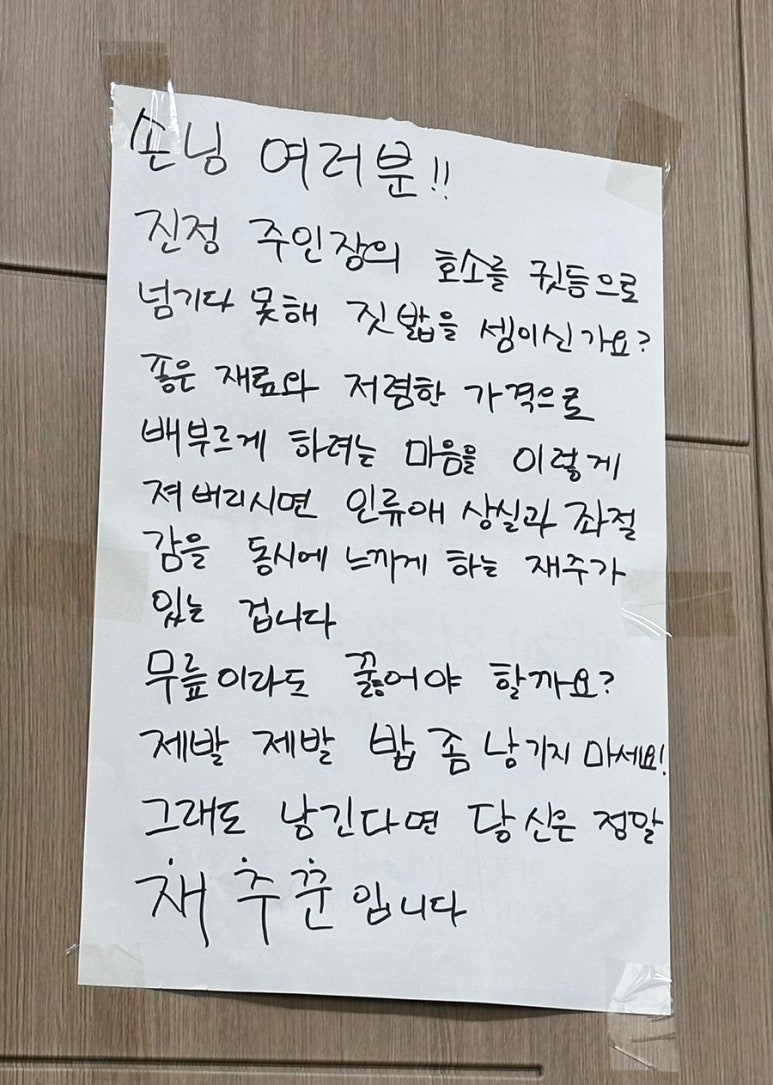 손님 여러분!!
진정 주인장의 호소를 귓등으로
넘기다 못해 짓밟을 셈이신가요?
좋은 재료와 저렴한 가격으로
배부르게 하려는 마음을 이렇게
져버리시면 인류애 상실과 좌절
감을 동시에 느끼게 하는 재주가
있는 겁니다
무릎이라도 꿇어야 할까요?
제발 제발 밥 좀 남기지 마세요!
그래도 남긴다면 당신은 정말
재주꾼입니다